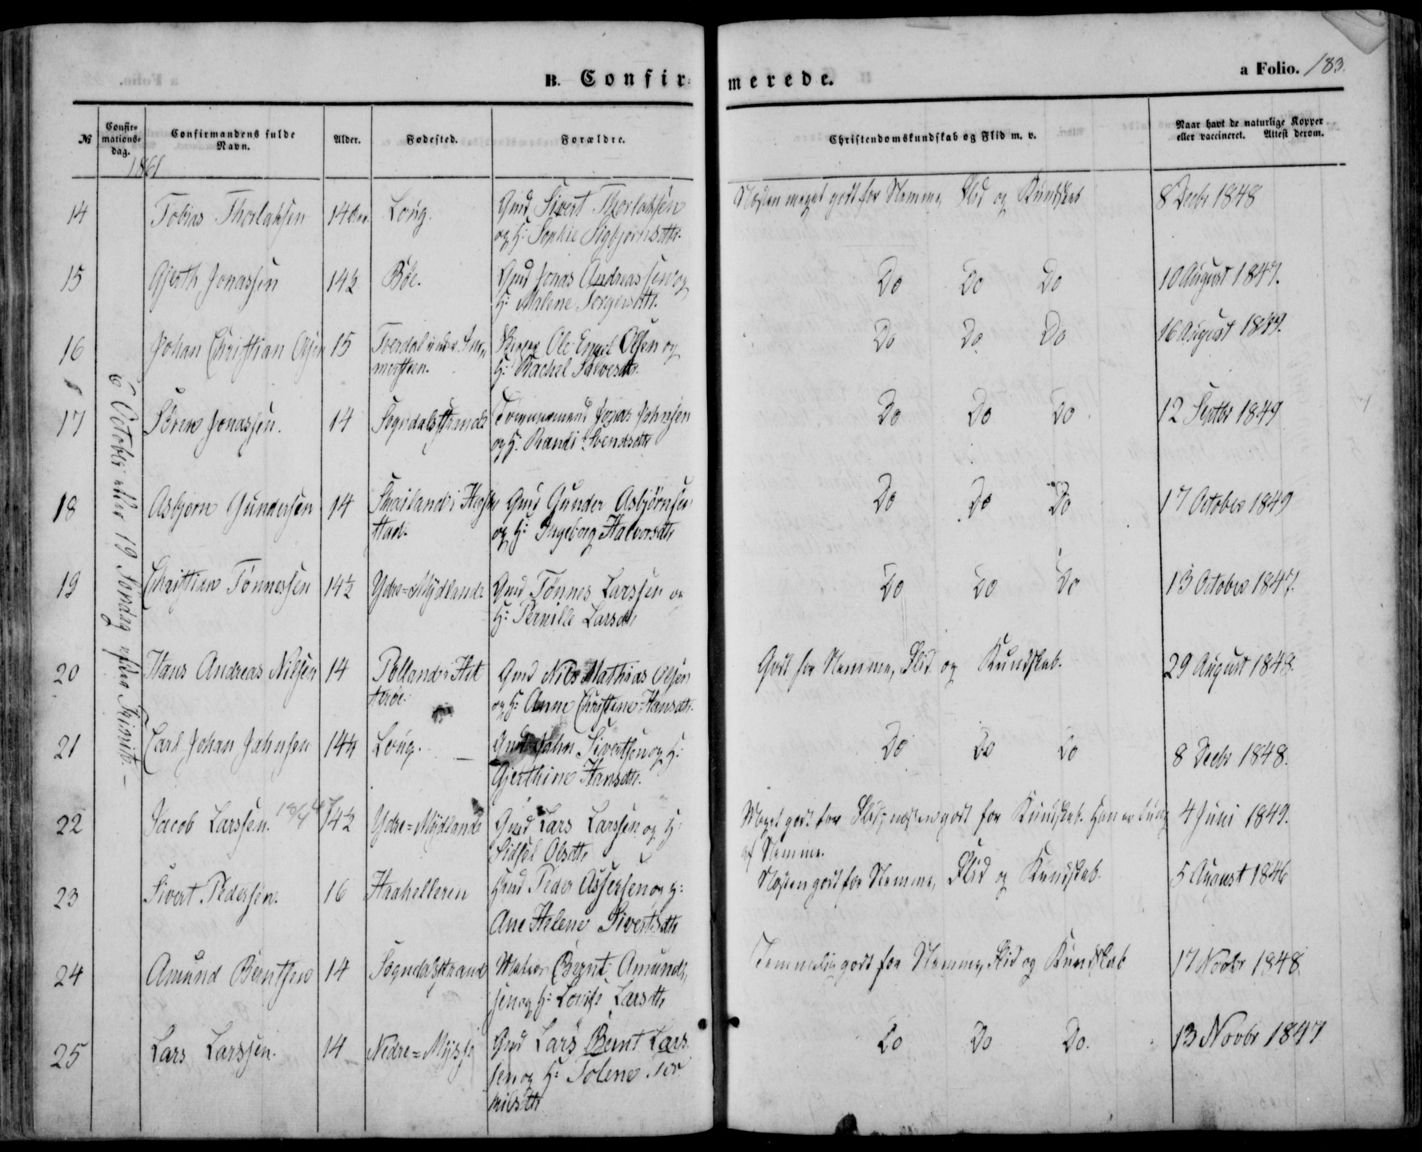 B. Confirmerede.
a Folio. 183.
№ Confirmationsdag. Confirmandens fulde Navn. Alder. Fødested. Forældre. Christendomskundskab og Flid m. v. Naar havt de naturlige Kopper eller vaccineret. Attest derom.
1861
6 Octobr eller 19 Søndag efter Trinit.
14 Tobias Thorlaksen 14 Løvg. Gmd Sivert Thorlaksen Næsten meget godt for Nemme, Flid og Kundskab 8 Decbr 1848
og H: Sophie Sigbjørnsdtr.
15 Gjerth Jonassen 14½ Bøe. Gmd Jonas Andreassen og Do Do Do 10 August 1847.
H: Malene Torgersdtr.
16 Johan Christian Olsen 15 Ole Engel Olsen og Do Do Do 16 August 1849.
H: Rachel Salvesdtr.
17 Søren Jonassen. 14 Sogndalsstrand Jonas Johnsen Do Do Do 12 Septbr 1849
og H. Randi Svendsdtr
18 Asbjørn Gundersen 14 i Gmd Gunder Asbjørnsen Do Do Do 17 October 1849
og H: Ingeborg Halvorsdtr
19 Christian Tønnessen 14½ Ydre=Mydland Gmd Tønnes Larssen og Do Do Do 13 October 1847.
H: Pernille Larsdtr
20 Hans Andreas Nilsen 14 Gmd Nils Mathias Olsen Godt for Nemme, Flid og Kundskab. 29 August 1848.
og H: Anne Christine Hansdtr.
21 Carl Johan Johnsen 14½ Løvg. Gmd John Sivertsen og H: Do Do Do 8 Decbr 1848.
Gjerthine Hansdtr.
22 Jacob Larssen. 14½ Ydre=Mydland Gmd Lars Larssen og H: Meget godt for Flid, næsten godt for Kundskab. Han er tung 4 Juni 1849.
Sidsel Olsdtr af Nemme.
23 Sivert Pedersen. 16 Haahelleren Gmd Peder Assersen og H: Næsten godt for Nemme, Flid og Kundskab. 5 August 1846
Ane Helene Sivertsdtr
24 Amund Berntsen 14 Sogndalsstrand Bernt Amund- Temmelig godt for Nemme, Flid og Kundskab 17 Novbr 1848.
sen og H: Lovise Larsdtr
25 Lars Larssen. 14 Gmd Lars Bernt Lars- Do Do Do. 13 Novbr 1847
sen og H: Tolene